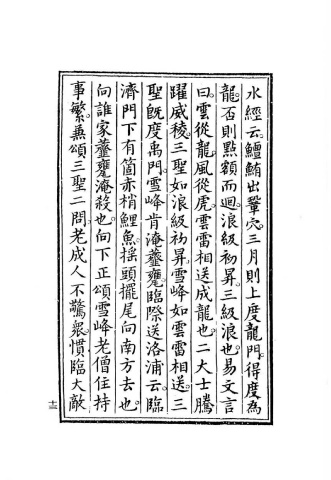 水經云鱣鮪出鞏穴三月則上度龍門得度為
龍否則點額而迴浪級初昇三級浪也易文言
曰雲從龍風從虎雲雷相送成龍也二大士騰
躍威稜三聖如浪級初昇雪峰如雲雷相送三
聖旣度禹門雪峰肯淹虀甕臨際送洛浦云臨
濟門下有箇赤梢鯉魚搖頭擺尾向南方去也
向誰家虀甕淹殺也向下正頌雪峰老僧住持
事繁兼頌三聖二問老成人不驚衆慣臨大敵